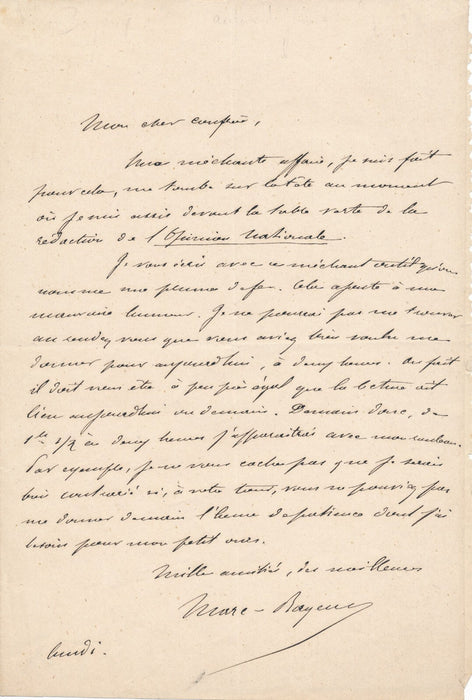 Mon cher confrère,
Une méchante affaire, je suis fait
pour cela, me tombe sur la tête au moment
où je suis assis devant la table verte de la
rédaction de l'Opinion Nationale.
Je vous écris avec ce méchant outil qu'on
nomme une plume de fer. Cela ajoute à ma
mauvaise humeur. Je ne pourrai pas me trouver
au rendez vous que vous aviez bien voulu me
donner pour aujourd'hui, à deux heures. Au fait
il doit vous être à peu près égal que la lecture ait
lieu aujourd'hui ou demain. Demain donc, de
1h 1/2 à deux heures j'apparaîtrai avec mon rouleau.
Par exemple, je ne vous cache pas que je serais
très contrarié si, à votre tour, vous ne pouviez pas
me donner demain l'heure de patience dont j'ai
besoin pour mon petit ours.
Mille amitiés, des meilleures
Marc-Bayeux
lundi.